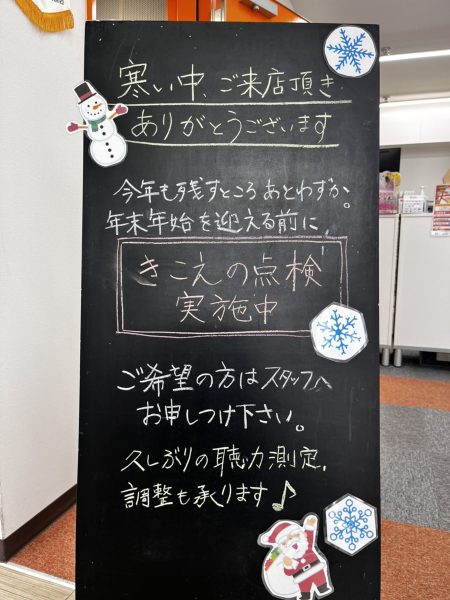 寒い中、ご来店頂き
ありがとうございます
今年も残すところあとわずか。
年末年始を迎える前に、
きこえの点検
実施中
ご希望の方はスタッフへ
お申しつけ下さい。
久しぶりの聴力測定、
調整も承ります♪